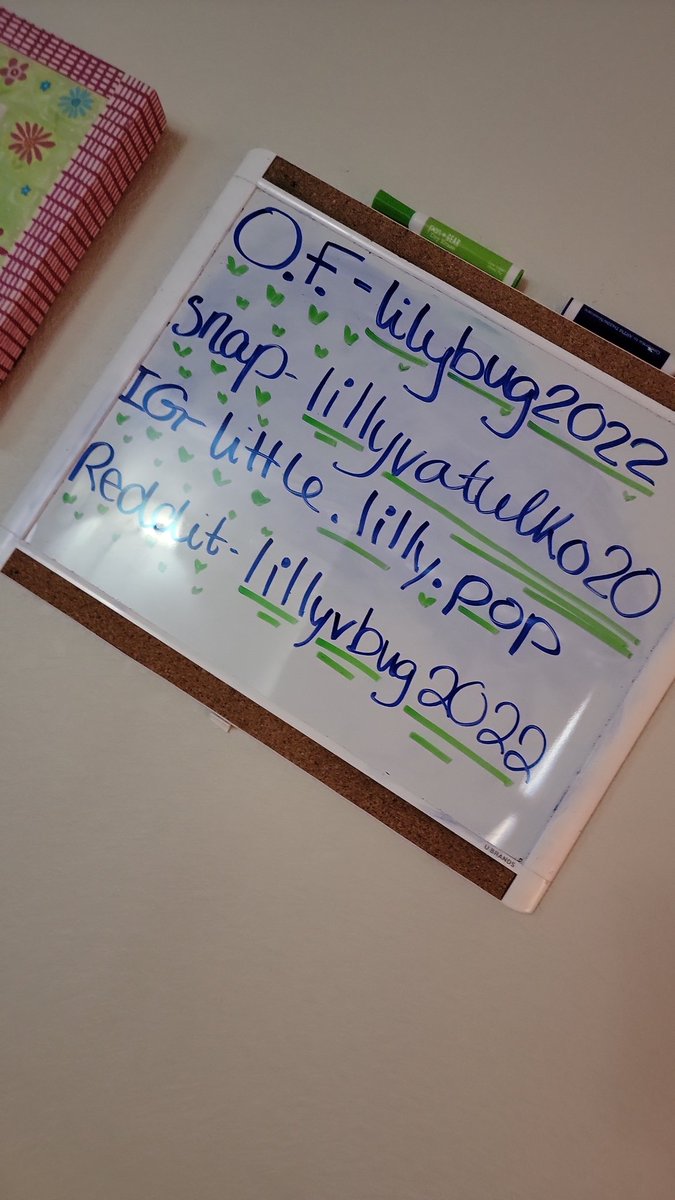 O.F.-lilybug2022
snap-lillyvatulko20
IG-little.lilly.pop
Reddit-lillyvbug2022
U BRANDS